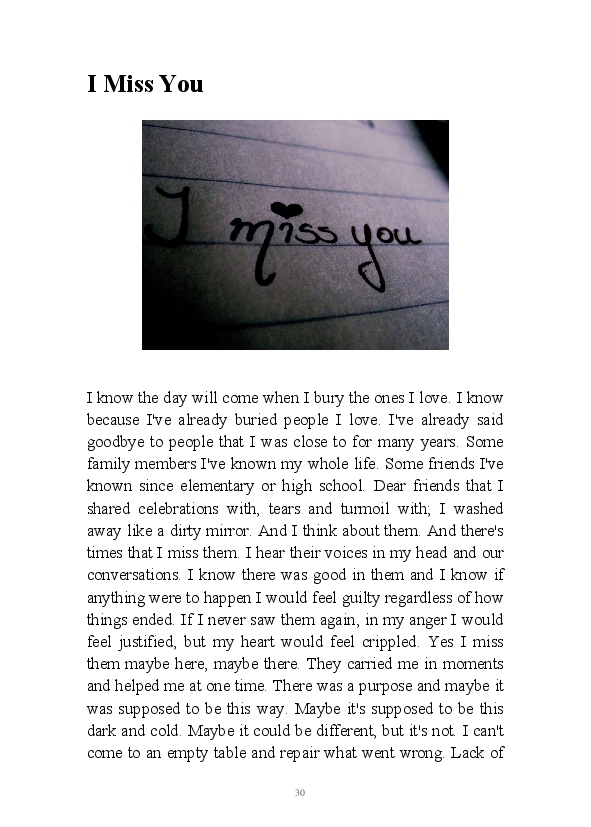 I Miss You
I miss you
I know the day will come when I bury the ones I love. I know
because I've already buried people I love. I've already said
goodbye to people that I was close to for many years. Some
family members I've known my whole life. Some friends I've
known since elementary or high school. Dear friends that I
shared celebrations with, tears and turmoil with; I washed
away like a dirty mirror. And I think about them. And there's
times that I miss them. I hear their voices in my head and our
conversations. I know there was good in them and I know if
anything were to happen I would feel guilty regardless of how
things ended. If I never saw them again, in my anger I would
feel justified, but my heart would feel crippled. Yes I miss
them maybe here, maybe there. They carried me in moments
and helped me at one time. There was a purpose and maybe it
was supposed to be this way. Maybe it's supposed to be this
dark and cold. Maybe it could be different, but it's not. I can't
come to an empty table and repair what went wrong. Lack of
30